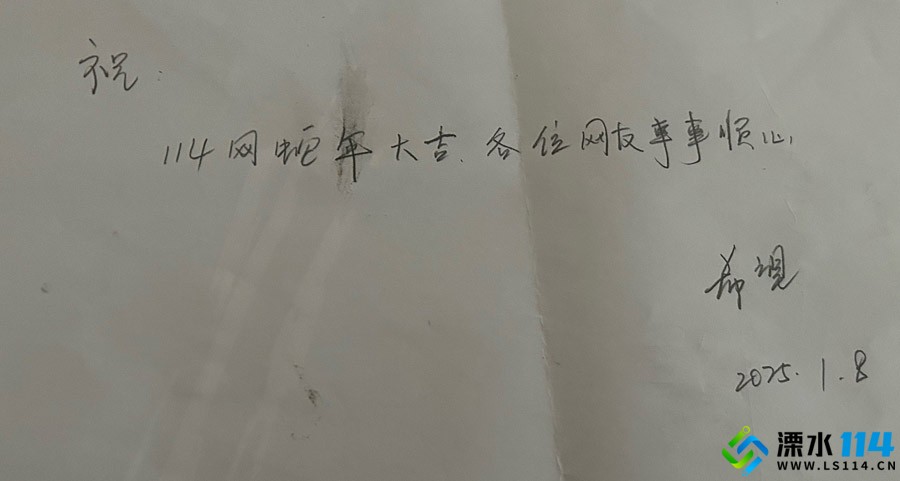 祝:
114网蛇年大吉、各位网友事事顺心
2025.1.8
溧水114
WWW.LS114.CN